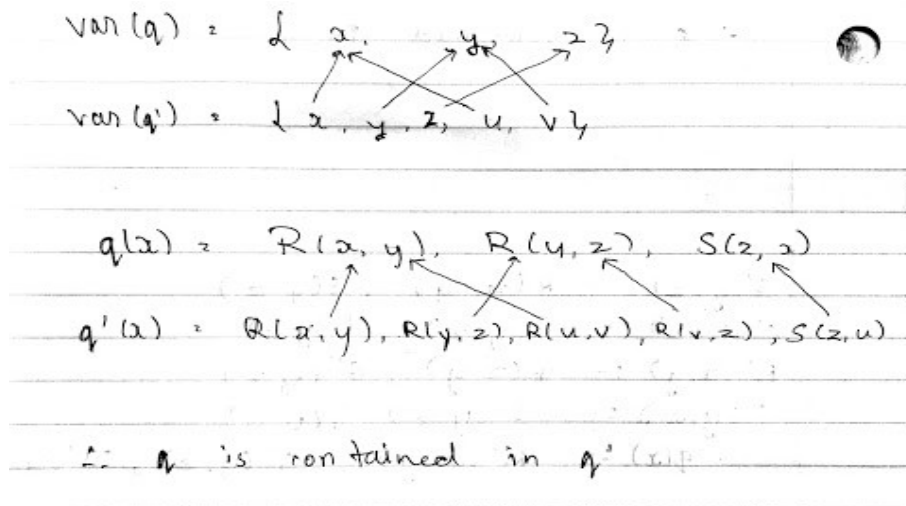 var(q) = { x, y, z }
var(q') = { x, y, z, u, v }
q(x) = R(x, y), R(y, z), S(z, x)
q'(x) = R(x, y), R(y, z), R(u, v), R(v, z), S(z, u)
∴ q is contained in q'